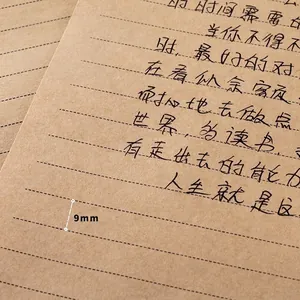 的时间需要
当你不得不
时,最好的对
在看似
而耐心地去做点
世界,为读书,
有走出去的能力
人生就是这
9mm